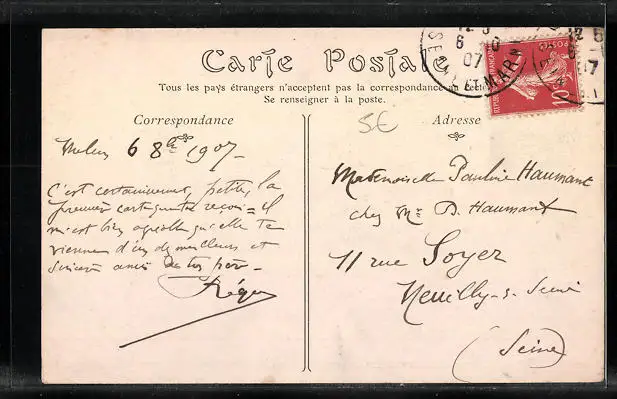 Carte Postale
Tous les pays étrangers n'acceptent pas la correspondance au recto
Se renseigner à la poste.
Correspondance
Adresse
5€
Melun 6 8bre 1907
C'est certainement, petite, la
première carte que tu reçois = il
m'est bien agréable qu'elle te
vienne d'un de meilleurs et
sincère amis de ton père
Mademoiselle Pauline Haumant
chez Mr D. Haumant
11 rue Soyer
Neuilly-s-Seine
(Seine)
SEINE ET MARNE
07
POSTES
10